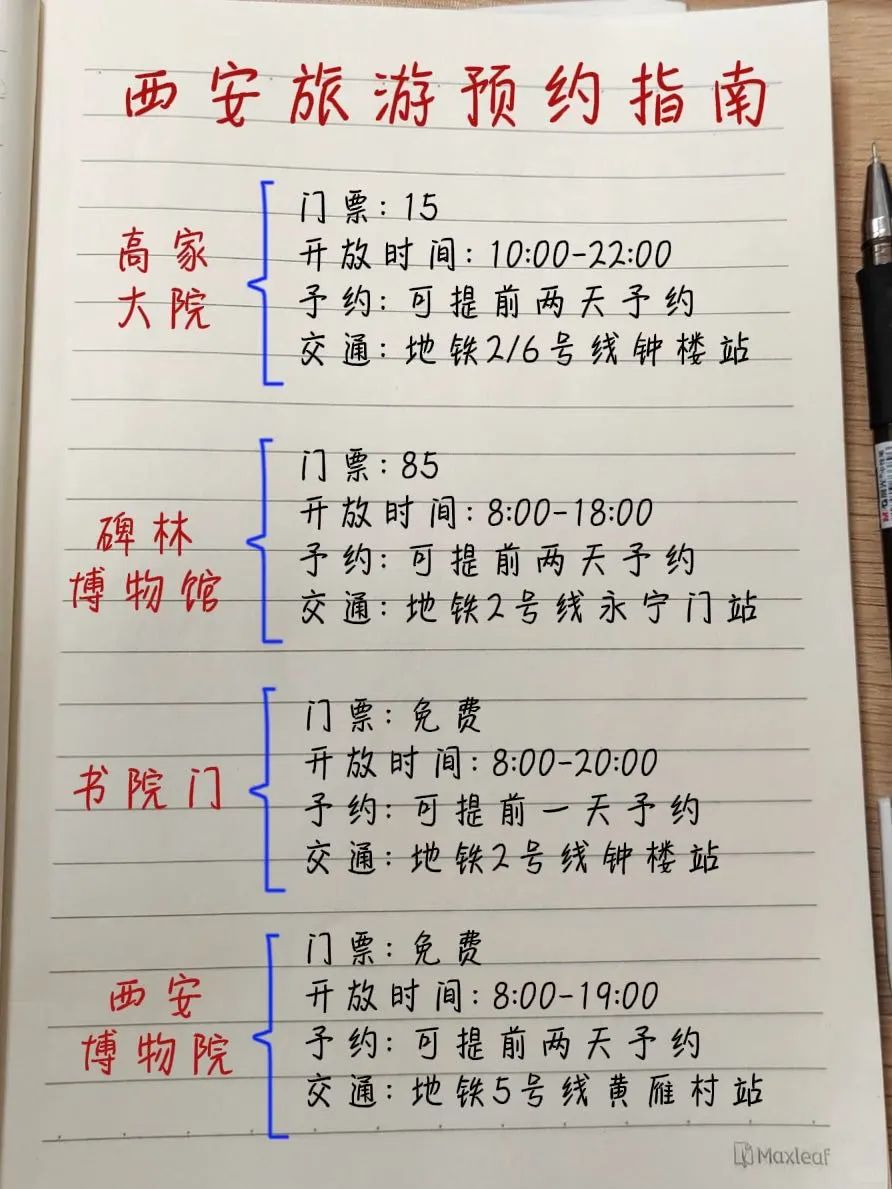 西安旅游预约指南
高家
大院
门票:15
开放时间:10:00-22:00
予约:可提前两天予约
交通:地铁2/6号线钟楼站
碑林
博物馆
门票:85
开放时间:8:00-18:00
予约:可提前两天予约
交通:地铁2号线永宁门站
书院门
门票:免费
开放时间:8:00-20:00
予约:可提前一天予约
交通:地铁2号线钟楼站
西安
博物院
门票:免费
开放时间:8:00-19:00
予约:可提前两天予约
交通:地铁5号线黄雁村站
Maxleaf